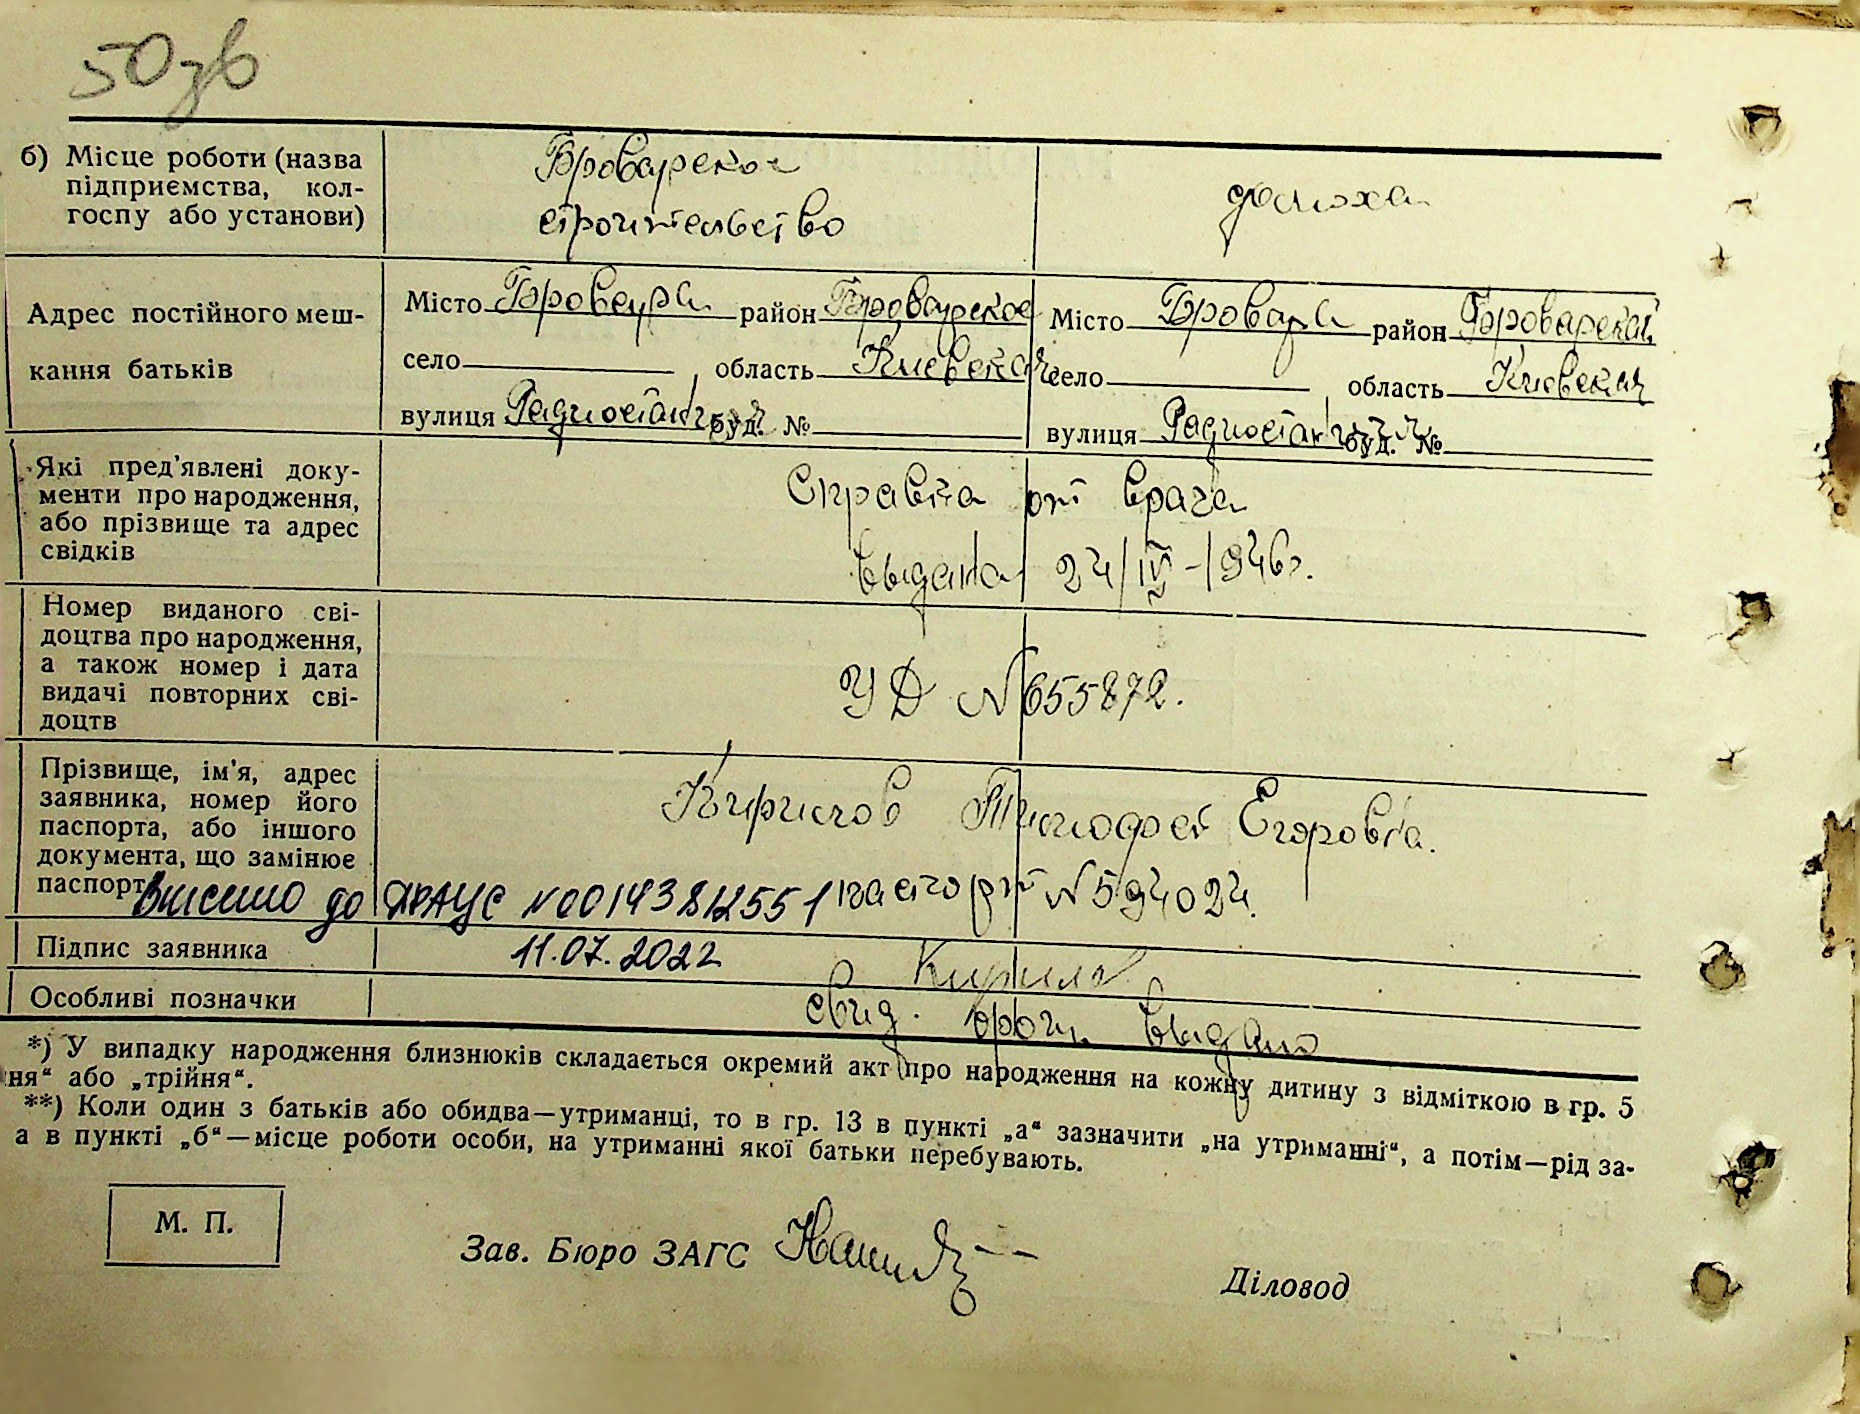 50зв
б) Місце роботи (назва
підприємства, кол-
госпу або установи)
Броварское
строительство
домохоз.
Адрес постійного меш-
кання батьків
Місто Бровари район Броварское
село , область Киевская
вулиця Радиостанция буд. №
Місто Бровари район Броварский
село , область Киевская
вулиця Радиостанция буд. №
Які пред'явлені доку-
менти про народження,
або прізвище та адрес
свідків
Справка от врача
выдана 24/IV-1946г.
Номер виданого сві-
доцтва про народження,
а також номер і дата
видачі повторних сві-
доцтв
УД №655872.
Прізвище, ім'я, адрес
заявника, номер його
паспорта, або іншого
документа, що замінює
паспорт
Кирилов Тимофей Егорович.
паспорт №594024.
Внесено до ДРАЦС №00143812551
11.07.2022
Підпис заявника
Кирилов
Особливі позначки
свид. выдано
*) У випадку народження близнюків складається окремий акт про народження на кожну дитину з відміткою в гр. 5
ня“ або „трійня“.
**) Коли один з батьків або обидва—утриманці, то в гр. 13 в пункті „а“ зазначити „на утриманні“, а потім—рід за-
а в пункті „б“—місце роботи особи, на утриманні якої батьки перебувають.
М. П.
Зав. Бюро ЗАГС
Діловод